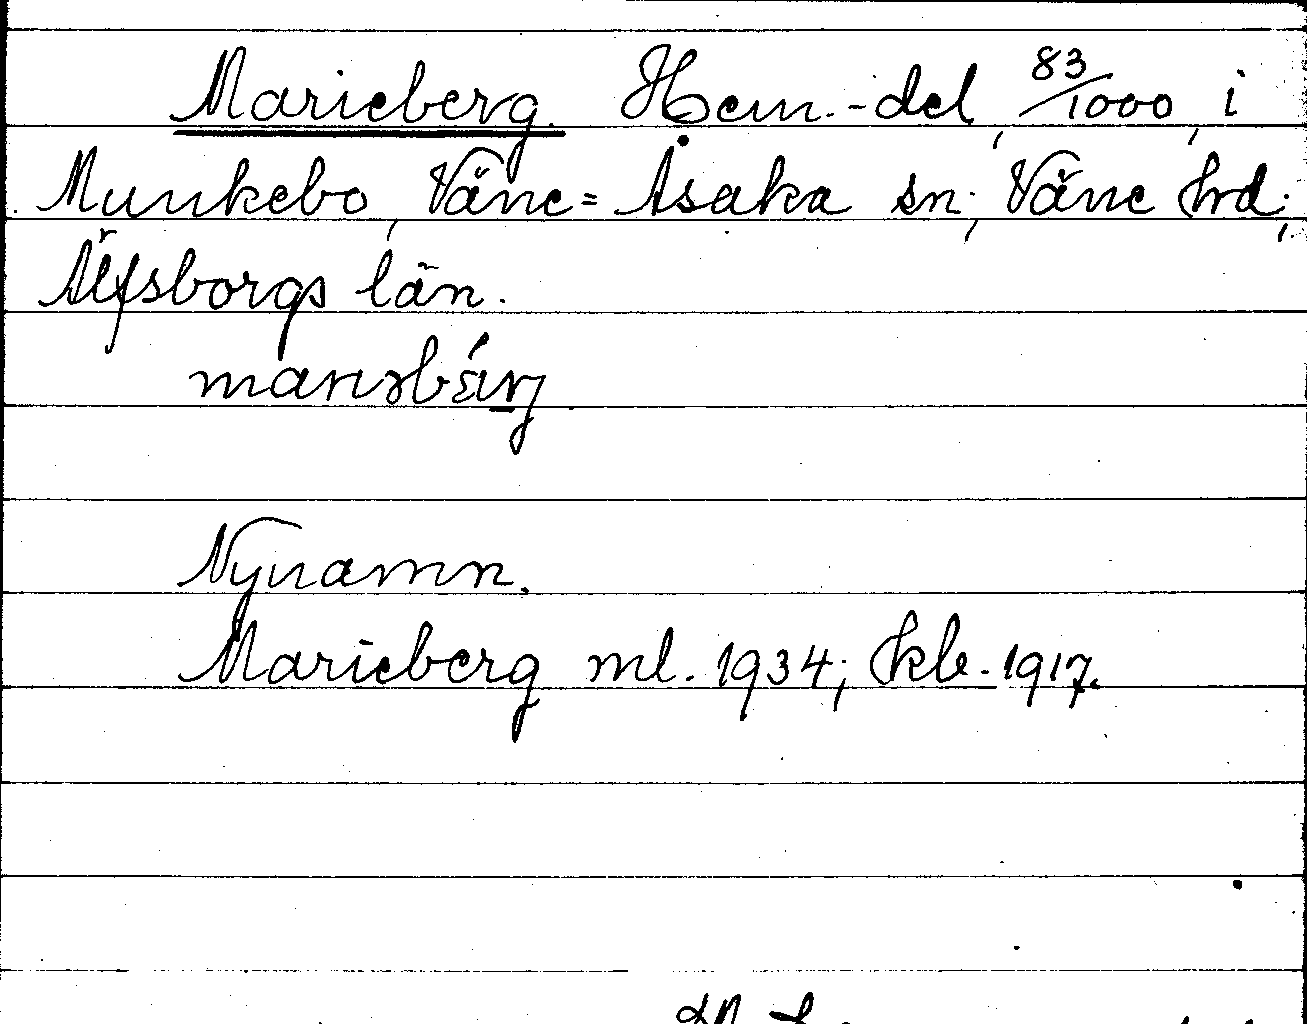 Marieberg. Hem.-del, 83/1000, i
Munkebo, Väne=Åsaka sn; Väne hrd;
Älfsborgs län.
Nynamn.
Marieberg ml. 1934; kb. 1917.